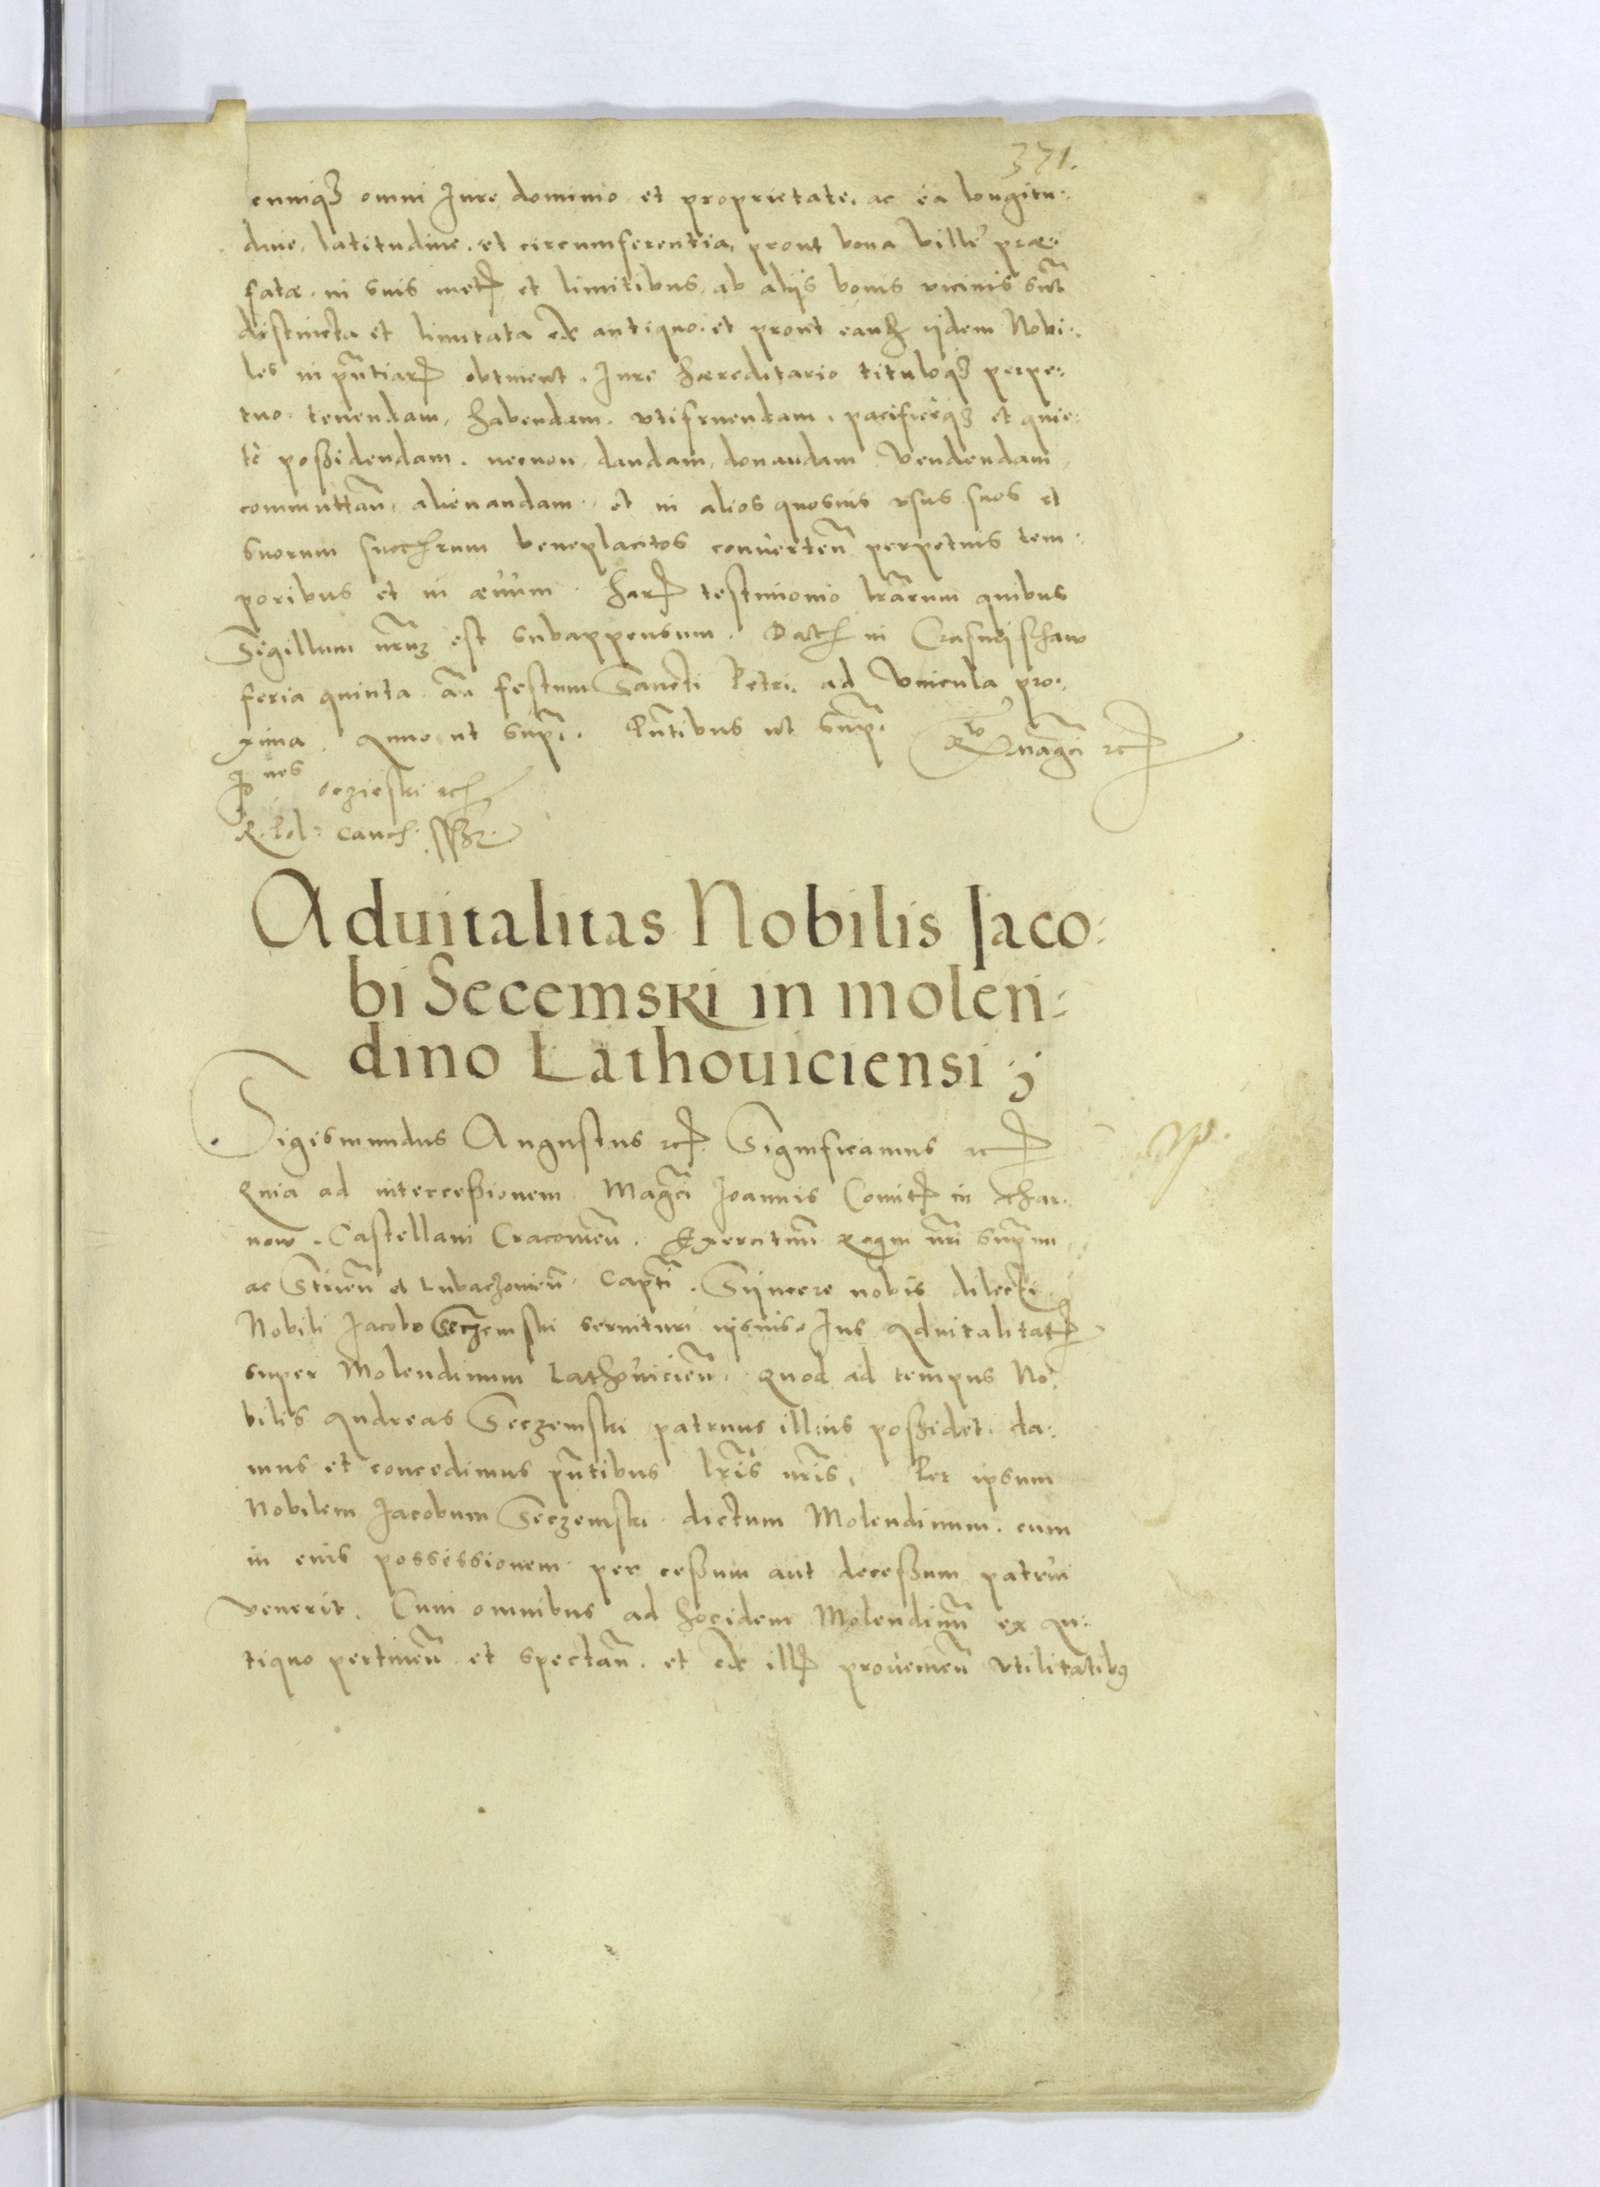 371.
cumq3 omni Jure dominio et proprietate, ac ea longitu:
dine, latitudine, et circumferentia, prout bona villę præ:
fatæ in suis met et limitibus ab alijs bonis vicinis sūt
distincta et limitata ex antiquo, et prout eam ijdem Nobi:
les in pñtiar obtinent. Jure hæreditario tituloq3 perpe:
tuo tenendam, habendam, utifruendam, pacificeq3 et quie:
tè possidendam. necnon dandam, donandam vendendam,
commuttañ, alienandam, et in alios quosuis usus suos et
suorum succrum beneplacitos conuerteñ perpetuis tem:
poribus et in æuum. Har testimonio lrarum quibus
Sigillum nrum est subappensum. Dat in Crasnijschaw
feria quinta añ festum Sancti Petri ad Vincula pro:
xima. Anno ut sup. Pñtibus ut sup. Magci etc
Joes Oczieski etc
R. Pol: canc: ssr.
Aduitalitas Nobilis Jaco:
bi Secemski in molen:
dino Lathouiciensi ;
Sigismundus Augustus etc Significamus etc
Quia ad intercessionem Magci Joannis Comit in Thar:
now. Castellani Cracouień. Exercituū Regni nri supmi
ac Strień et Lubaczouień Capti. Sijncere nobis dilecti
Nobili Jacobo Seczemski seruitori ipsius Jus Aduitalitat
super Molendinum Lathouicień. Quod ad tempus No:
bilis Andreas Seczemski patruus illius possidet. da:
mus et concedimus pñtibus lris nris. Per ipsum
Nobilem Jacobum Seczemski dictum Molendinum. cum
in eius possessionem per cessum aut decessum patrui
venerit. Cum omnibus ad hocidem Molendinū ex an:
tiquo pertineñ et spectañ. et ex ill prouenień utilitatibus